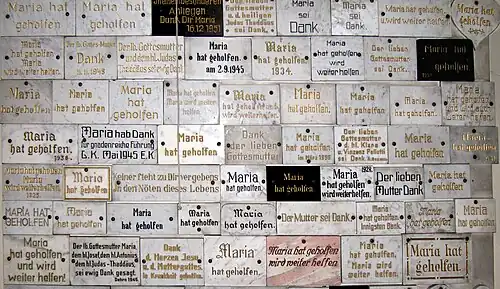 Maria hat
geholfen.
Maria hat
geholfen.
Anliegen
Dank Dir Maria
16.12.1951
Gottesmutter
u.d. heiligen
Judas Thaddäus
sei Dank.
Maria
sei
Dank
Maria hat
geholfen.
Maria hat geholfen
u. wird weiterhelfen.
Maria hat
geholfen.
Maria
hat geholfen
und wird
weiterhelfen
Der lb. Gottes Mutter
Dank
Der lb. Gottesmutter
und dem hl. Judas
Thaddäus sei ewig Dank
Maria
hat geholfen
am 2.9.1945
Maria
hat geholfen
1934.
Maria
hat geholfen u.
wird weiterhelfen.
Der lieben
Gottesmutter
sei Dank.
Maria
hat geholfen.
Maria
hat geholfen
Maria
hat geholfen
Maria
hat
geholfen
Maria hat geholfen
Maria wird weiter
helfen
Maria
hat geholfen u.
wird weiterhelfen.
Maria
hat geholfen.
Maria
hat geholfen.
Maria
hat geholfen.
Maria hat
geholfen
Maria
hat geholfen.
1938.
Maria hab Dank
für gnadenreiche Führung
G. K. Mai 1945 E. K
Maria
hat geholfen.
Dank
der lieben
Gottesmutter
Maria
hat geholfen
Der lieben
Gottesmutter
sei Dank
Maria
hat geholfen.
Maria
hat geholfen.
Maria hat geholfen
Maria wird
weiterhelfen
Maria
hat geholfen.
Keiner fleht zu Dir vergebens
in den Nöten dieses Lebens
Maria
hat geholfen.
Maria
hat geholfen.
Maria
hat geholfen u.
wird weiterhelfen.
Der lieben
Mutter Dank
Maria hat
geholfen.
MARIA HAT
GEHOLFEN
Maria
hat geholfen.
Maria
hat geholfen.
Maria
hat geholfen.
Maria
hat geholfen.
Der Mutter sei Dank.
Maria
hat geholfen
innigsten Dank.
Maria
hat geholfen
Maria
hat geholfen.
Maria
hat geholfen
und wird
weiter helfen!
Der lb. Gottesmutter Maria,
dem hl. Josef, dem hl. Antonius,
dem hl. Judas - Thaddäus,
sei ewig Dank gesagt.
Dank
d. Herzen Jesu
u. d. Muttergottes
in Krankheit geholfen.
Maria
hat geholfen.
Maria hat geholfen
wird weiter helfen.
Maria
hat geholfen
Maria wird
weiterhelfen.
Maria hat
geholfen.